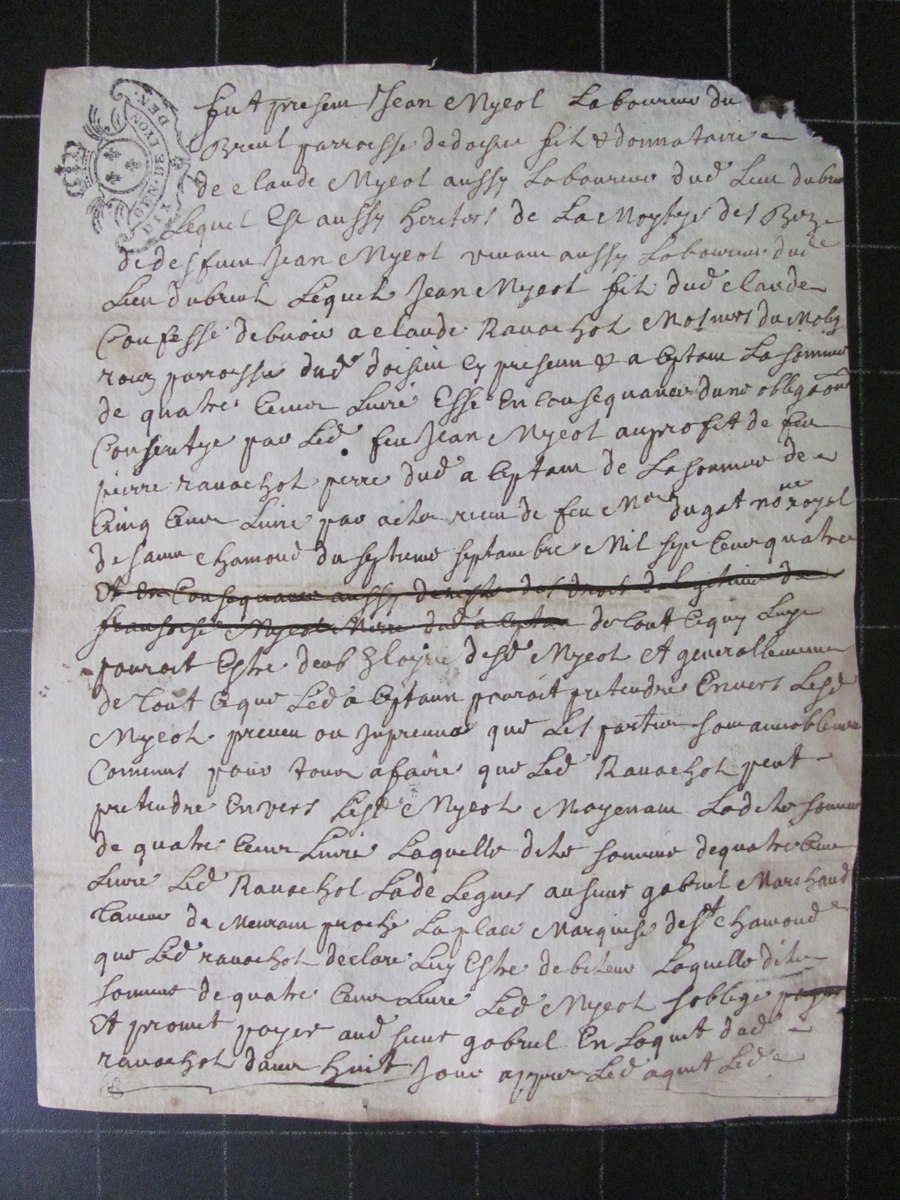 GEN. DE LYON
DIX DEN.
fut present Jean Myeol Laboureur du
Breul parroisse de doisieu fil & donnataire
de claude Myeol aussy Laboureur dud Lieu dubreu
Lequel Est aussy heritiers de La Moytye des
de desfun Jean Myeol vivant aussy Laboureur dud
Lieu dubreul Lequel Jean Myeol fil dud claude
Confesse debvoir a claude Ravachol du
parroisse dud doisieu Cy present & aCeptant La somme
de quatre Cent Livre Esse En Consequance dune obligaon
Consentye par Led feu Jean Myeol au profit de feu
pierre ravachol perre dud aCeptant de La somme de
Cinq Cent Livre par acte receu de feu Me dugat nore royal
de saint chamond du septieme septembre Mil sept Cent quatre
Et En Consequance aussy de des droit de Legitime de
fransoise Myeol Mere dud aCeptant de tout Cequy Luy
pouroit Estre deub desd Myeol Et generallement
de tout Ceque Led aCeptant pouroit pretendre Envers Lesd
Myeol preveu ou Inpreveu que Les partie sont
Convenus pour tout afaire que Led Ravachol peut
pretendre Envers Lesd Myeol Moyenant Ladite somme
de quatre Cent Livre Laquelle dite somme de quatre Cent
Livre Led Ravachol La de Legue au sieur gabriel Marchand
taneur de proche La place Marquise de st chamond
que Led ravachol declare Luy Estre debiteur Laquelle dite
somme de quatre Cent Livre Led Myeol soblige payer
Et promet payer aud sieur gabriel En Laquit dud
ravachol dans huit Jour appres Led aquit Led